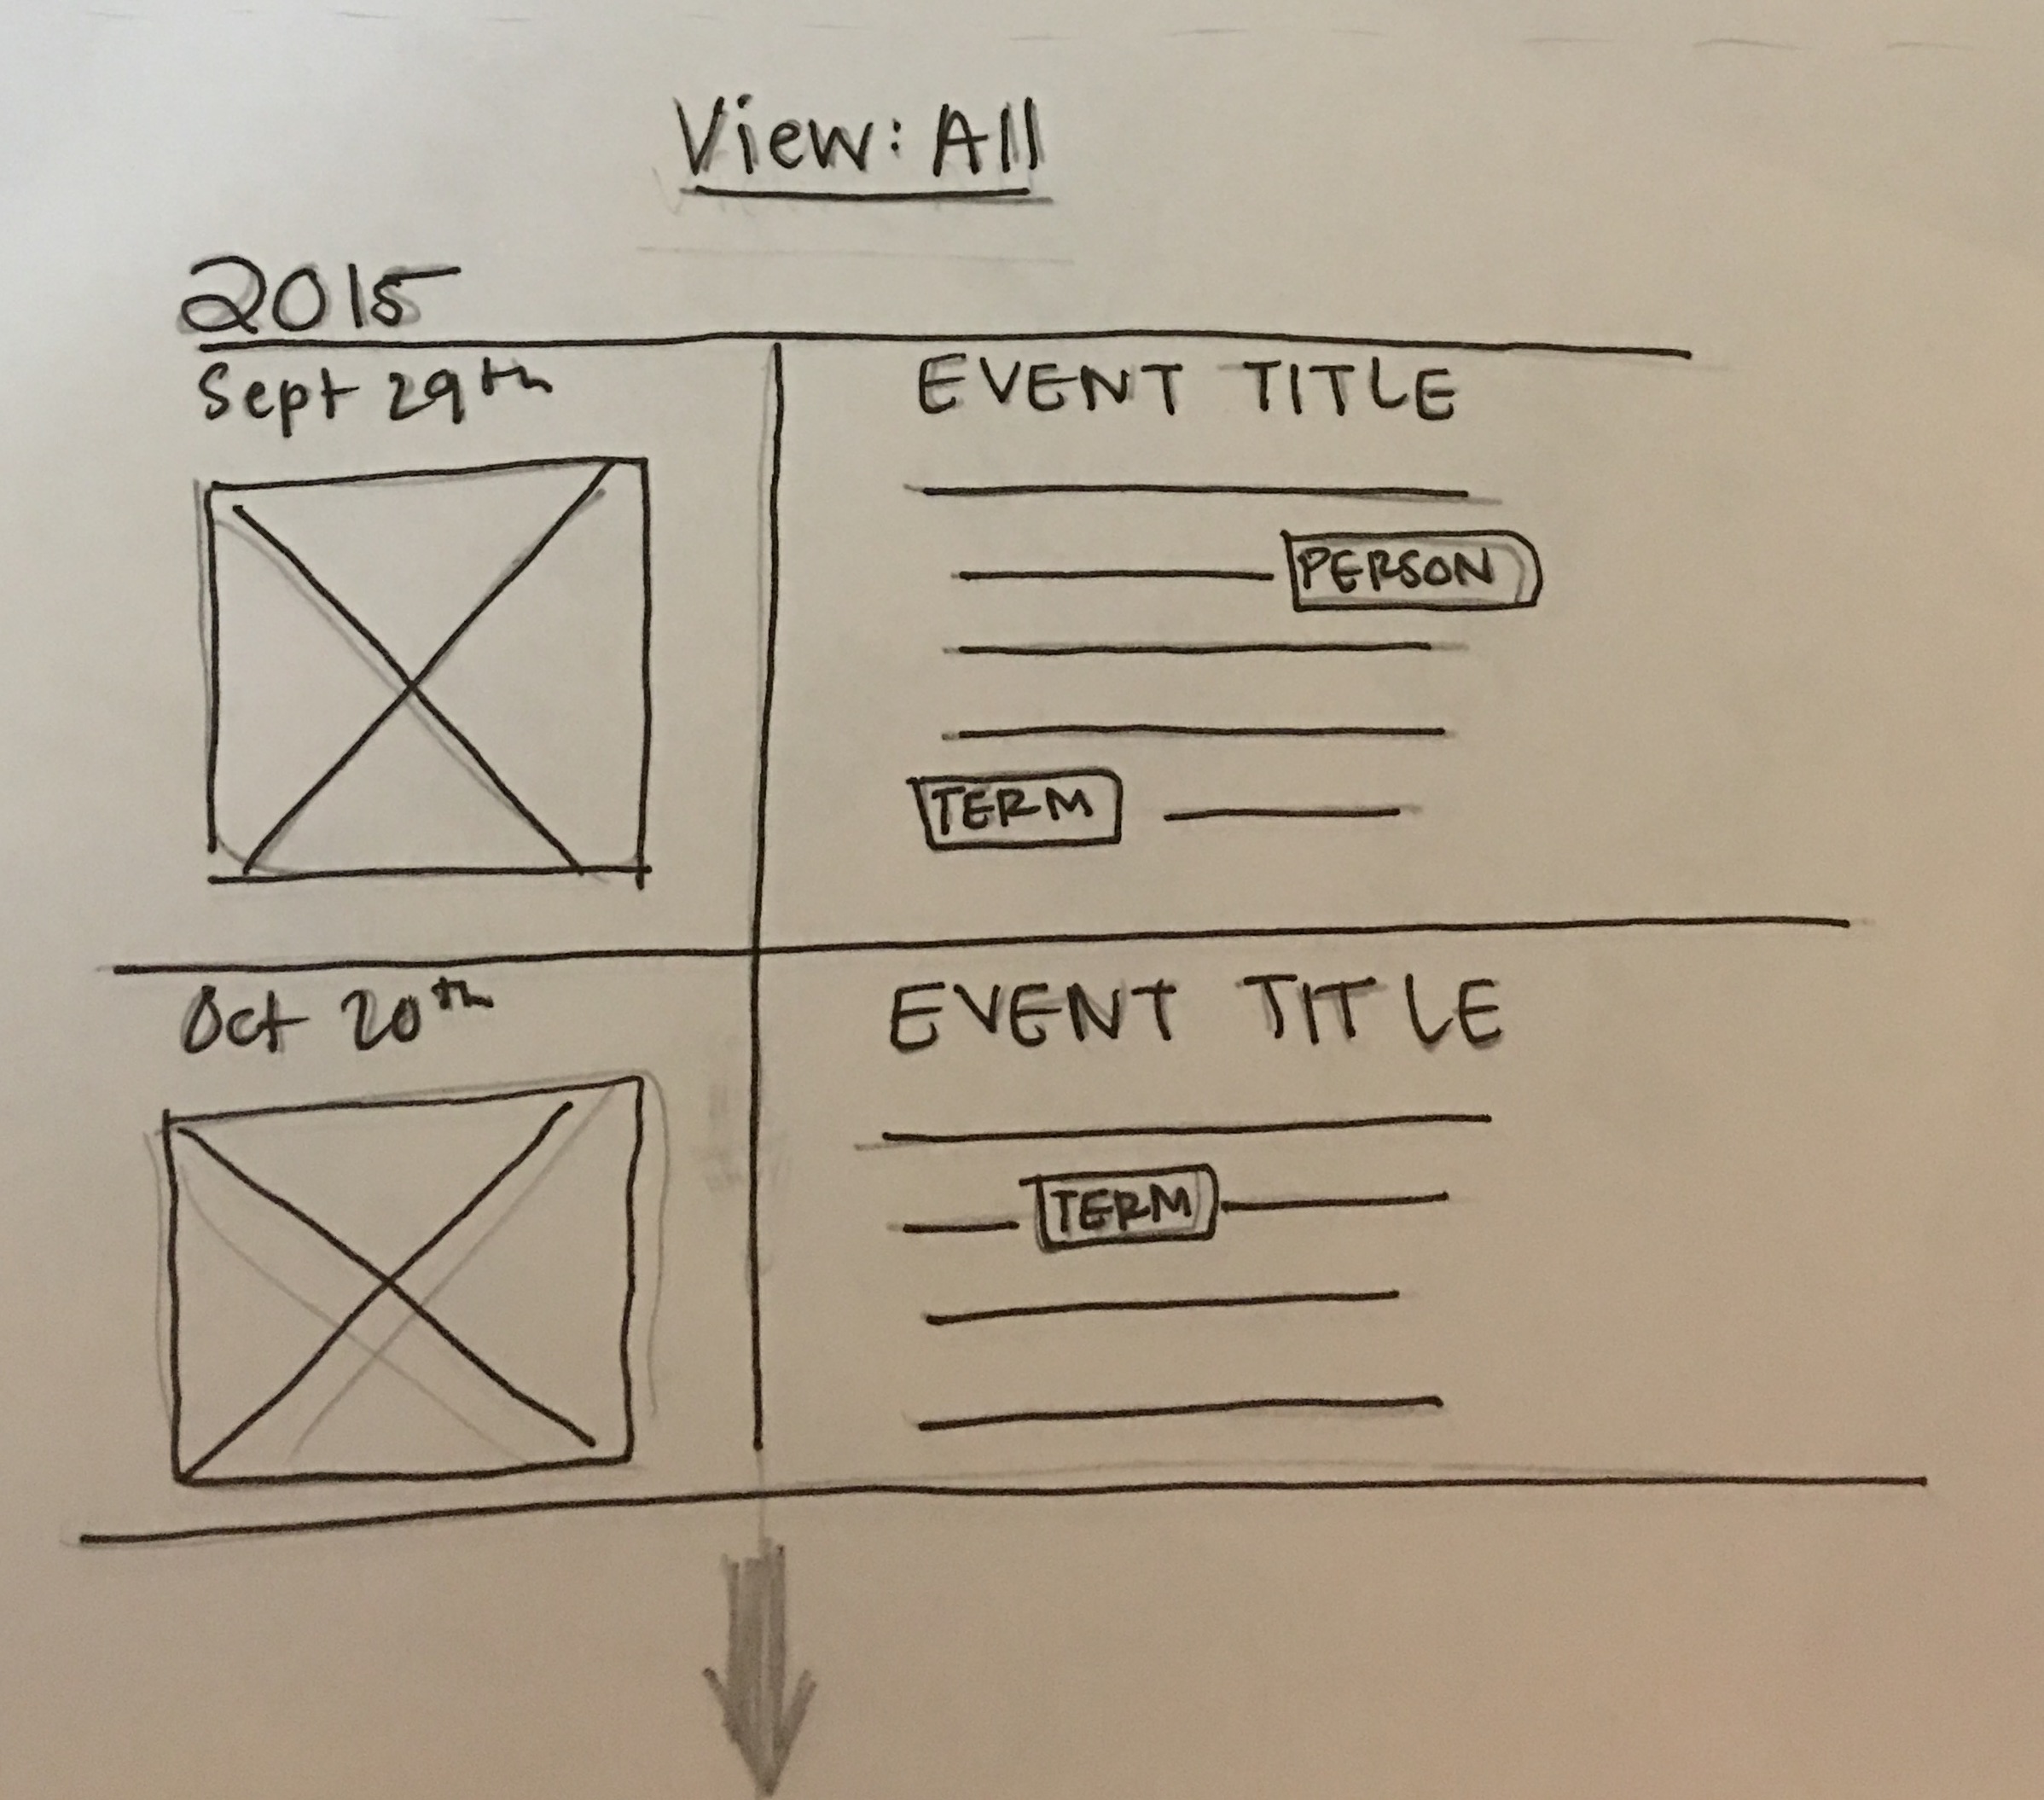 View: All
2015
Sept 29th
EVENT TITLE
PERSON
TERM
Oct 20th
EVENT TITLE
TERM